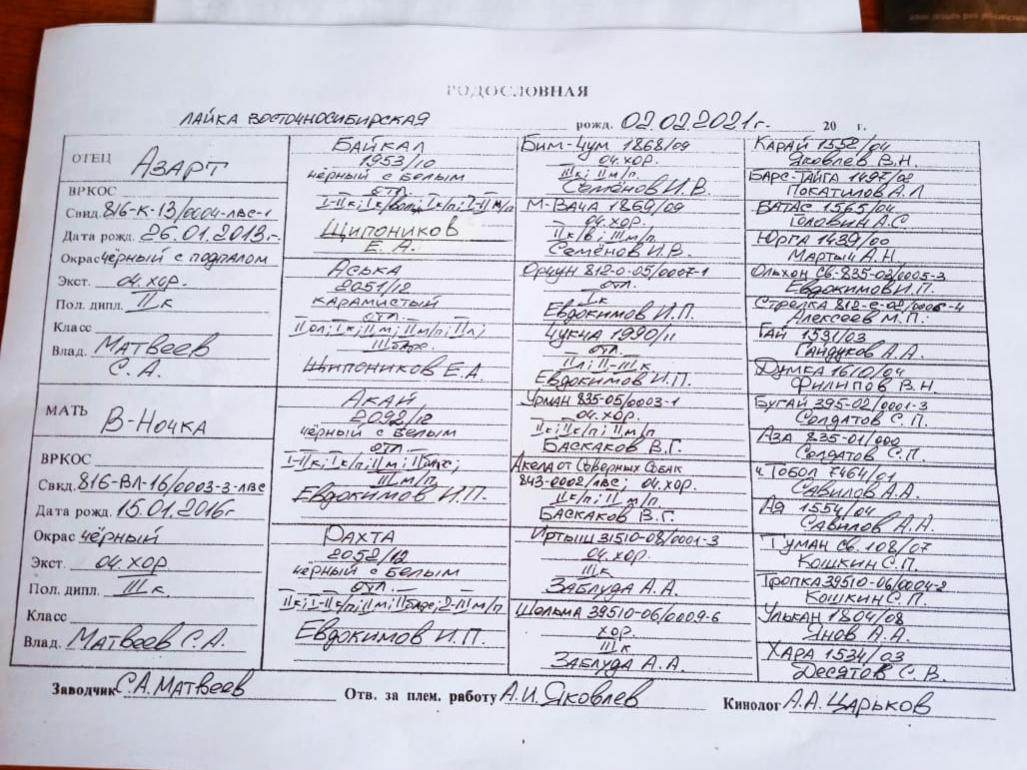 РОДОСЛОВНАЯ
ЛАЙКА ВОСТОЧНОСИБИРСКАЯ рожд. 02.02.2021г. 20 г.
ОТЕЦ АЗАРТ
ВРКОС
Свид. 816-К-13/0004-ЛВС-1
Дата рожд. 26.01.2013г.
Окрас чёрный с подпалом
Экст. 04.хор.
Пол. дипл. IIк
Класс
Влад. Матвеев
С. А.
МАТЬ В-Ночка
ВРКОС
Свид. 816-ВЛ-16/0003-3-ЛВС
Дата рожд. 15.01.2016г
Окрас чёрный
Экст. 04.хор
Пол. дипл. IIIк.
Класс
Влад. Матвеев С.А.
БАЙКАЛ
1953/10
чёрный с белым
отл.
Щипоников
Е. А.
Аська
2051/12
карамистый
отл.
Щипоников Е.А.
Акай
2092/12
чёрный с белым
отл.
III м/п
Евдокимов И.П.
Рахта
2052/12
чёрный с белым
отл.
Евдокимов И.П.
Бим-Чум 1868/09
04.хор.
IIIк; II м/п.
Семёнов И.В.
М-Вача 1869/09
04.хор.
IIк/в; III м/п
Семёнов И.В.
Орчун 812-0-05/0007-1
отл.
Iк
Евдокимов И.П.
Чукча 1990/11
отл.
Евдокимов И.П.
Урман 835-05/0003-1
04.хор.
IIк; IIк/п; II м/п
Баскаков В.Г.
Акела от Северных Собак
843-0002/лвс; 04.хор.
IIк/п; II м/п
Баскаков В.Г.
Иртыш 31510-08/0001-3
04.хор.
IIIк
Заблуда А.А.
Шольма 39510-06/0009-6
хор.
IIIк
Заблуда А.А.
Карай 1552/04
Яковлев В.Н.
Барс-Тайга 1497/02
Покатилов А.Л
Ватас 1565/04
Головин А.С.
Юрга 1439/00
Мартын А.Н.
Ольхон св-835-03/0005-3
Евдокимов И.П.
Стрелка 812-с-02/0006-4
Алексеев М.П.
Гай 1531/03
Гайдуков А.А.
Думка 1610/04
Филипов В.Н
Бугай 395-02/0001-3
Солдатов С.П.
Аза 835-01/000
Солдатов С.П.
ч. Тобол 7464/01
Савилов А.А.
Ая 1554/04
Савилов А.А.
Туман св. 108/07
Кошкин С.П.
Тропка 39510-06/0004-2
Кошкин С.П.
Улькан 1804/08
Янов А.А.
Хара 1534/03
Десятов С.В.
Заводчик С.А.Матвеев Отв. за плем. работу А.И.Яковлев Кинолог А.А.Царьков